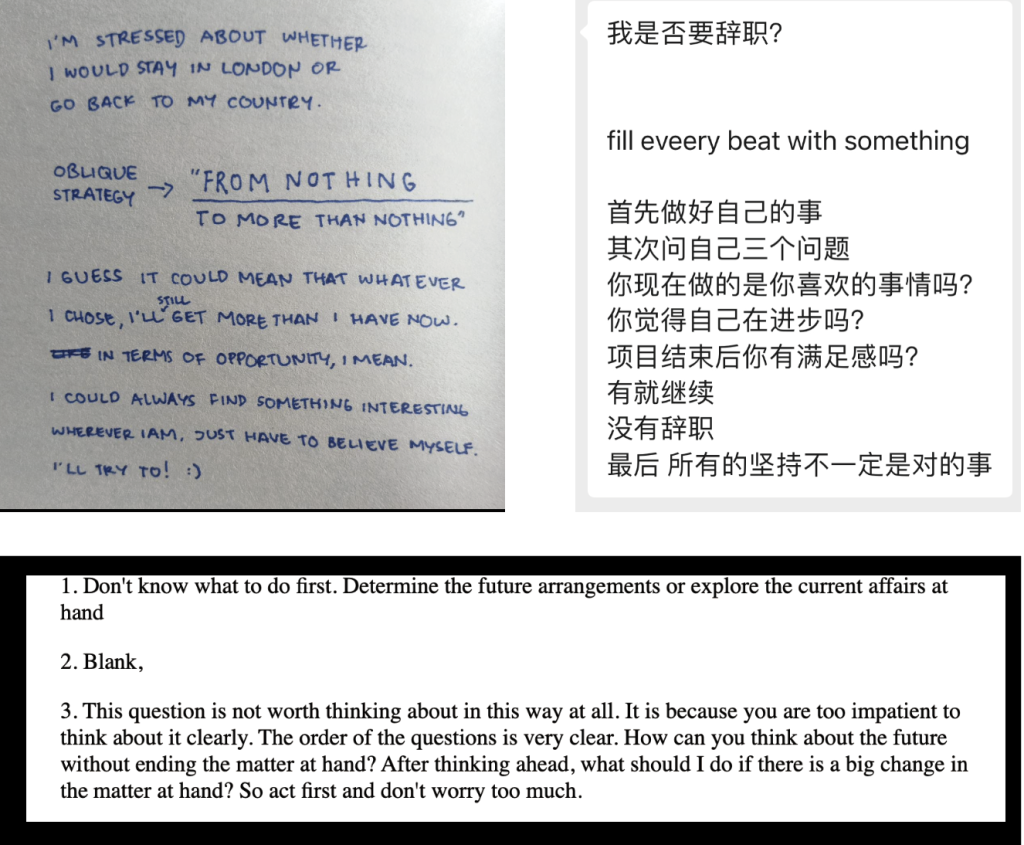 I'M STRESSED ABOUT WHETHER
I WOULD STAY IN LONDON OR
GO BACK TO MY COUNTRY.
OBLIQUE
STRATEGY → "FROM NOTHING
TO MORE THAN NOTHING"
I GUESS IT COULD MEAN THAT WHATEVER
I CHOSE, I'LL STILL GET MORE THAN I HAVE NOW.
IN TERMS OF OPPORTUNITY, I MEAN.
I COULD ALWAYS FIND SOMETHING INTERESTING
WHEREVER I AM, JUST HAVE TO BELIEVE MYSELF.
I'LL TRY TO! :)
我是否要辞职?
fill eveery beat with something
首先做好自己的事
其次问自己三个问题
你现在做的是你喜欢的事情吗?
你觉得自己在进步吗?
项目结束后你有满足感吗?
有就继续
没有辞职
最后 所有的坚持不一定是对的事
1. Don't know what to do first. Determine the future arrangements or explore the current affairs at
hand
2. Blank,
3. This question is not worth thinking about in this way at all. It is because you are too impatient to
think about it clearly. The order of the questions is very clear. How can you think about the future
without ending the matter at hand? After thinking ahead, what should I do if there is a big change in
the matter at hand? So act first and don't worry too much.